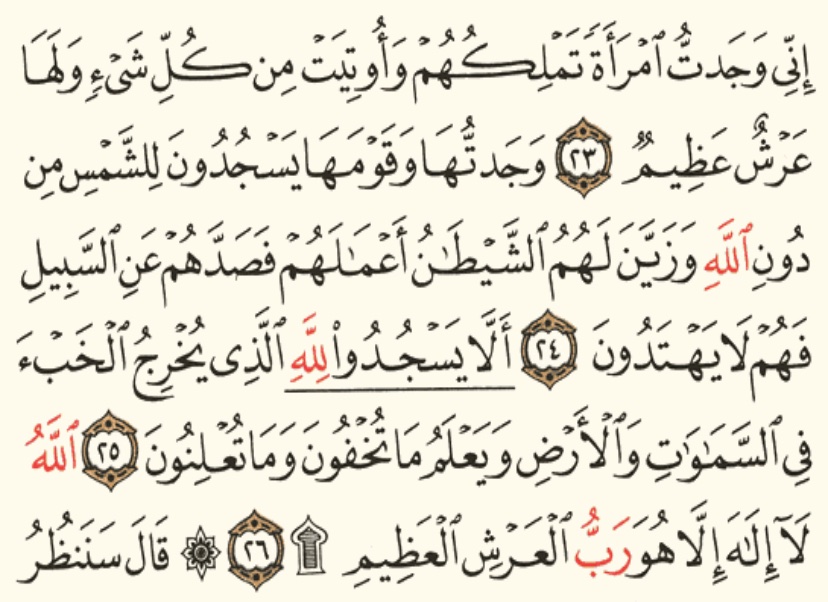 إِنِّى وَجَدتُّ ٱمْرَأَةً تَمْلِكُهُمْ وَأُوتِيَتْ مِن كُلِّ شَىْءٍ وَلَهَا
عَرْشٌ عَظِيمٌ ٢٣ وَجَدتُّهَا وَقَوْمَهَا يَسْجُدُونَ لِلشَّمْسِ مِن
دُونِ ٱللَّهِ وَزَيَّنَ لَهُمُ ٱلشَّيْطَـٰنُ أَعْمَـٰلَهُمْ فَصَدَّهُمْ عَنِ ٱلسَّبِيلِ
فَهُمْ لَا يَهْتَدُونَ ٢٤ أَلَّا يَسْجُدُوا۟ لِلَّهِ ٱلَّذِى يُخْرِجُ ٱلْخَبْءَ
فِى ٱلسَّمَـٰوَٰتِ وَٱلْأَرْضِ وَيَعْلَمُ مَا تُخْفُونَ وَمَا تُعْلِنُونَ ٢٥ ٱللَّهُ
لَآ إِلَـٰهَ إِلَّا هُوَ رَبُّ ٱلْعَرْشِ ٱلْعَظِيمِ ۩ ٢٦ ۞ قَالَ سَنَنظُرُ